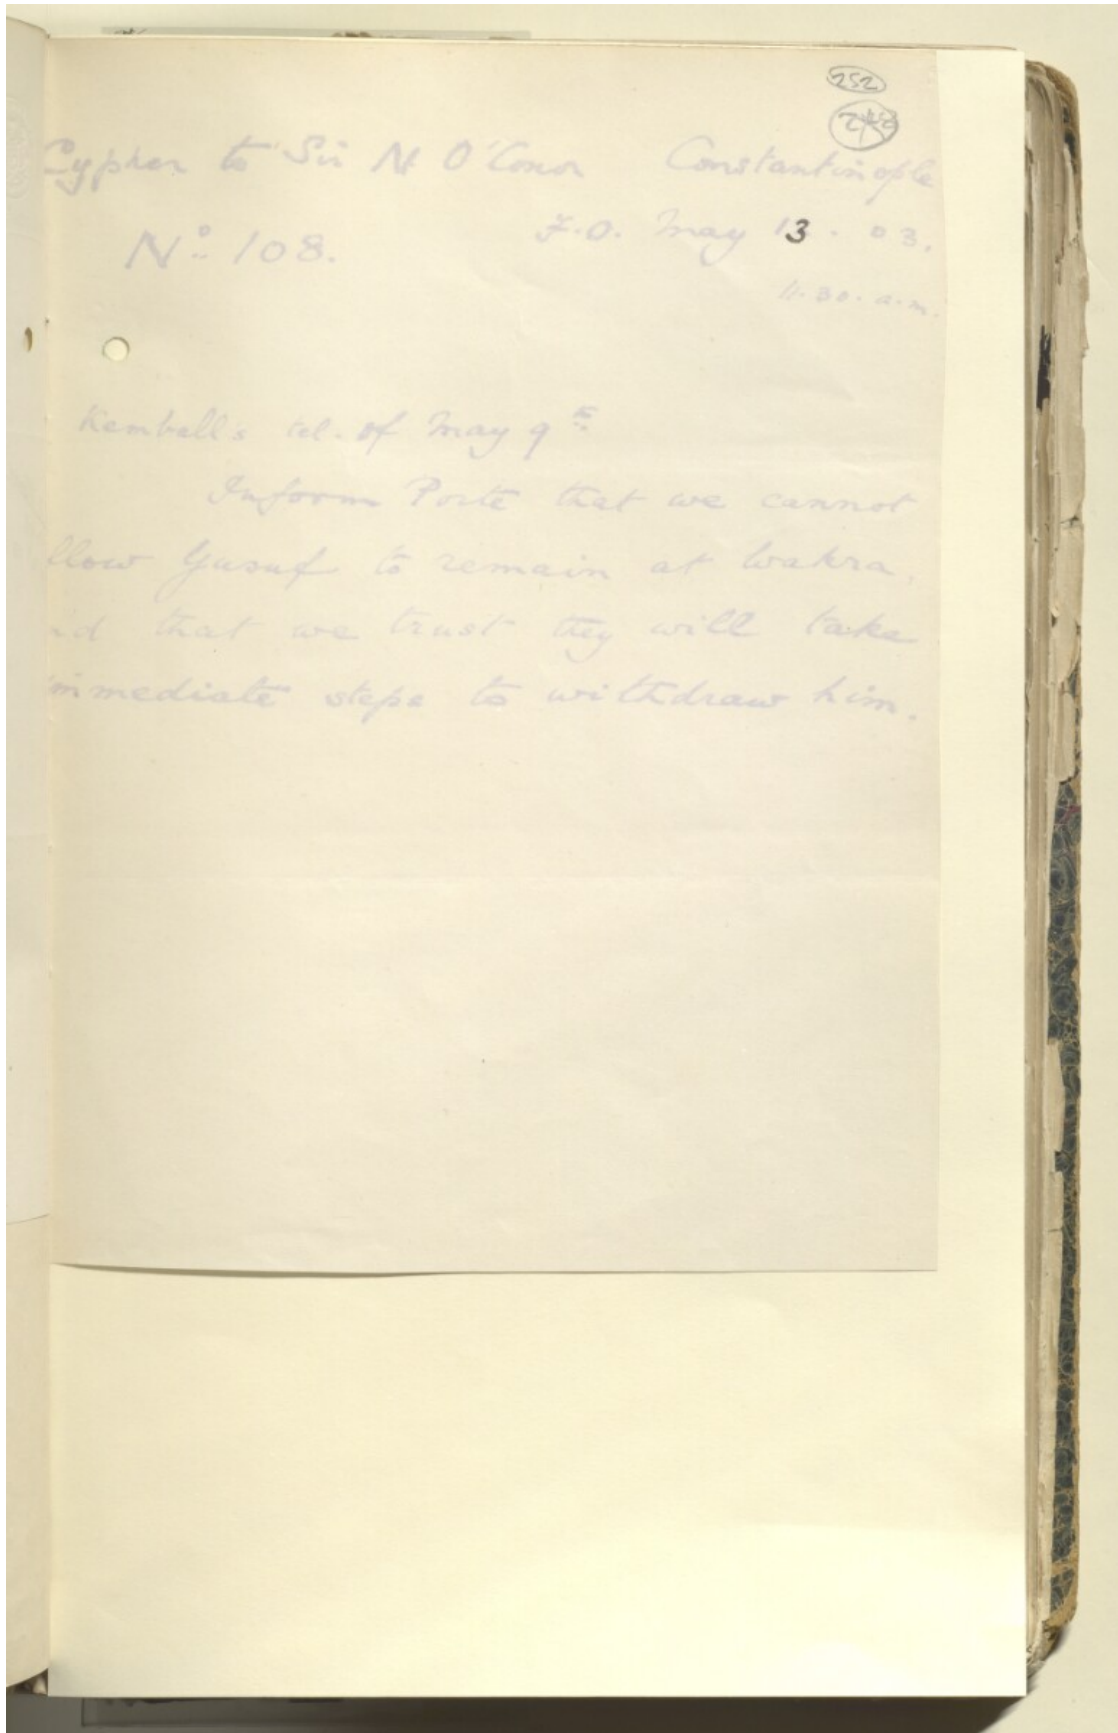 252
Cypher to Sir N O'Conor Constantinople
Nº 108. F.O. May 13. 03.
30. a.m.
Kemball's tel. of May 9th
Inform Porte that we cannot
llow Yusuf to remain at Wakra,
nd that we trust they will take
mmediate steps to withdraw him.